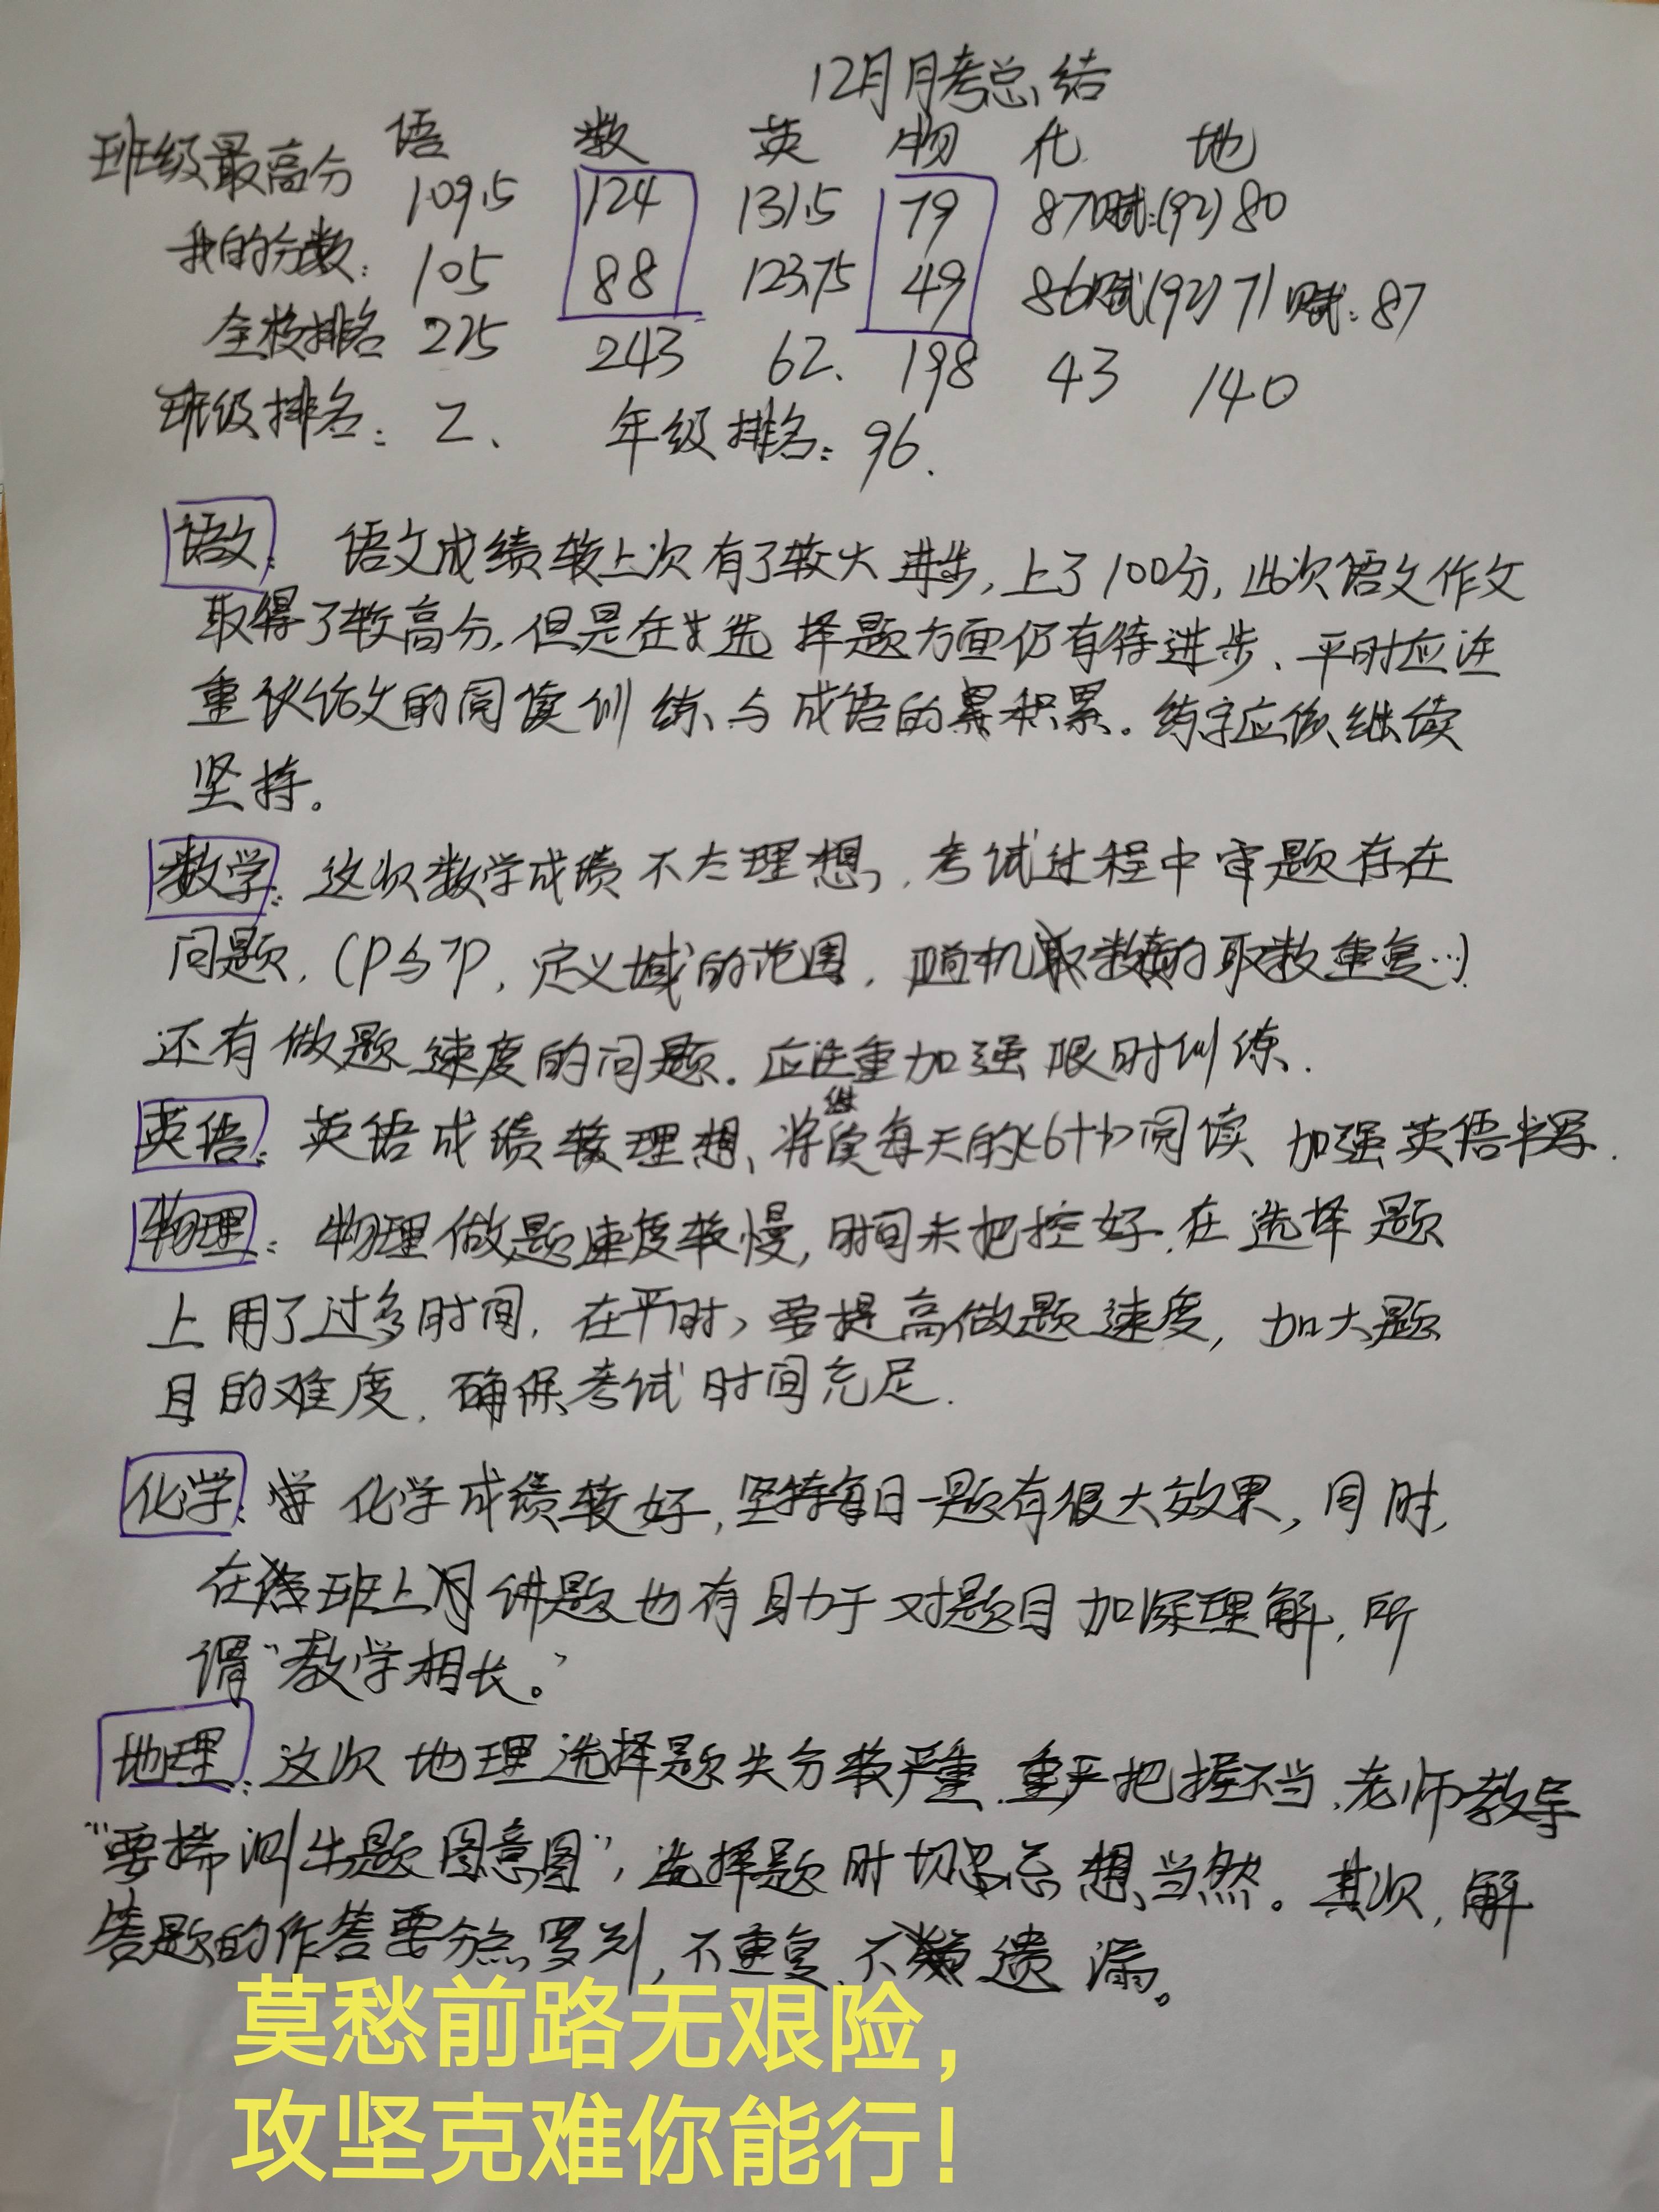 12月月考总结
语 数 英 物 化 地
班级最高分 109.5 124 131.5 79 87赋:(92) 80
我的分数: 105 88 123.75 49 86赋(92) 71赋:87
全校排名 225 243 62. 198 43 140
班级排名:2、 年级排名:96.
语文: 语文成绩较上次有了较大进步,上了100分,此次语文作文
取得了较高分,但是在选择题方面仍有待进步、平时应注
重议论文的阅读训练、与成语的积累。练字应该继续
坚持。
数学:这次数学成绩不太理想,考试过程中审题存在
问题,(P与¬P,定义域的范围,随机数的取数重复…)
还有做题速度的问题。应注重加强限时训练.
英语:英语成绩较理想、将继续每天的<6+1>阅读、加强英语书写.
物理:物理做题速度较慢,时间未把控好,在选择题
上用了过多时间,在平时,要提高做题速度,加大题
目的难度,确保考试时间充足.
化学:化学成绩较好,坚持每日一题有很大效果,同时,
在班上讲题也有助于对题目加深理解,所
谓“教学相长。”
地理:这次地理选择题失分较严重.重严把握不当,老师教导
“要揣测出题图意图”,选择题时切忌想当然。其次,解
答题的作答要分点罗列,不重复、不遗漏。
莫愁前路无艰险,
攻坚克难你能行!